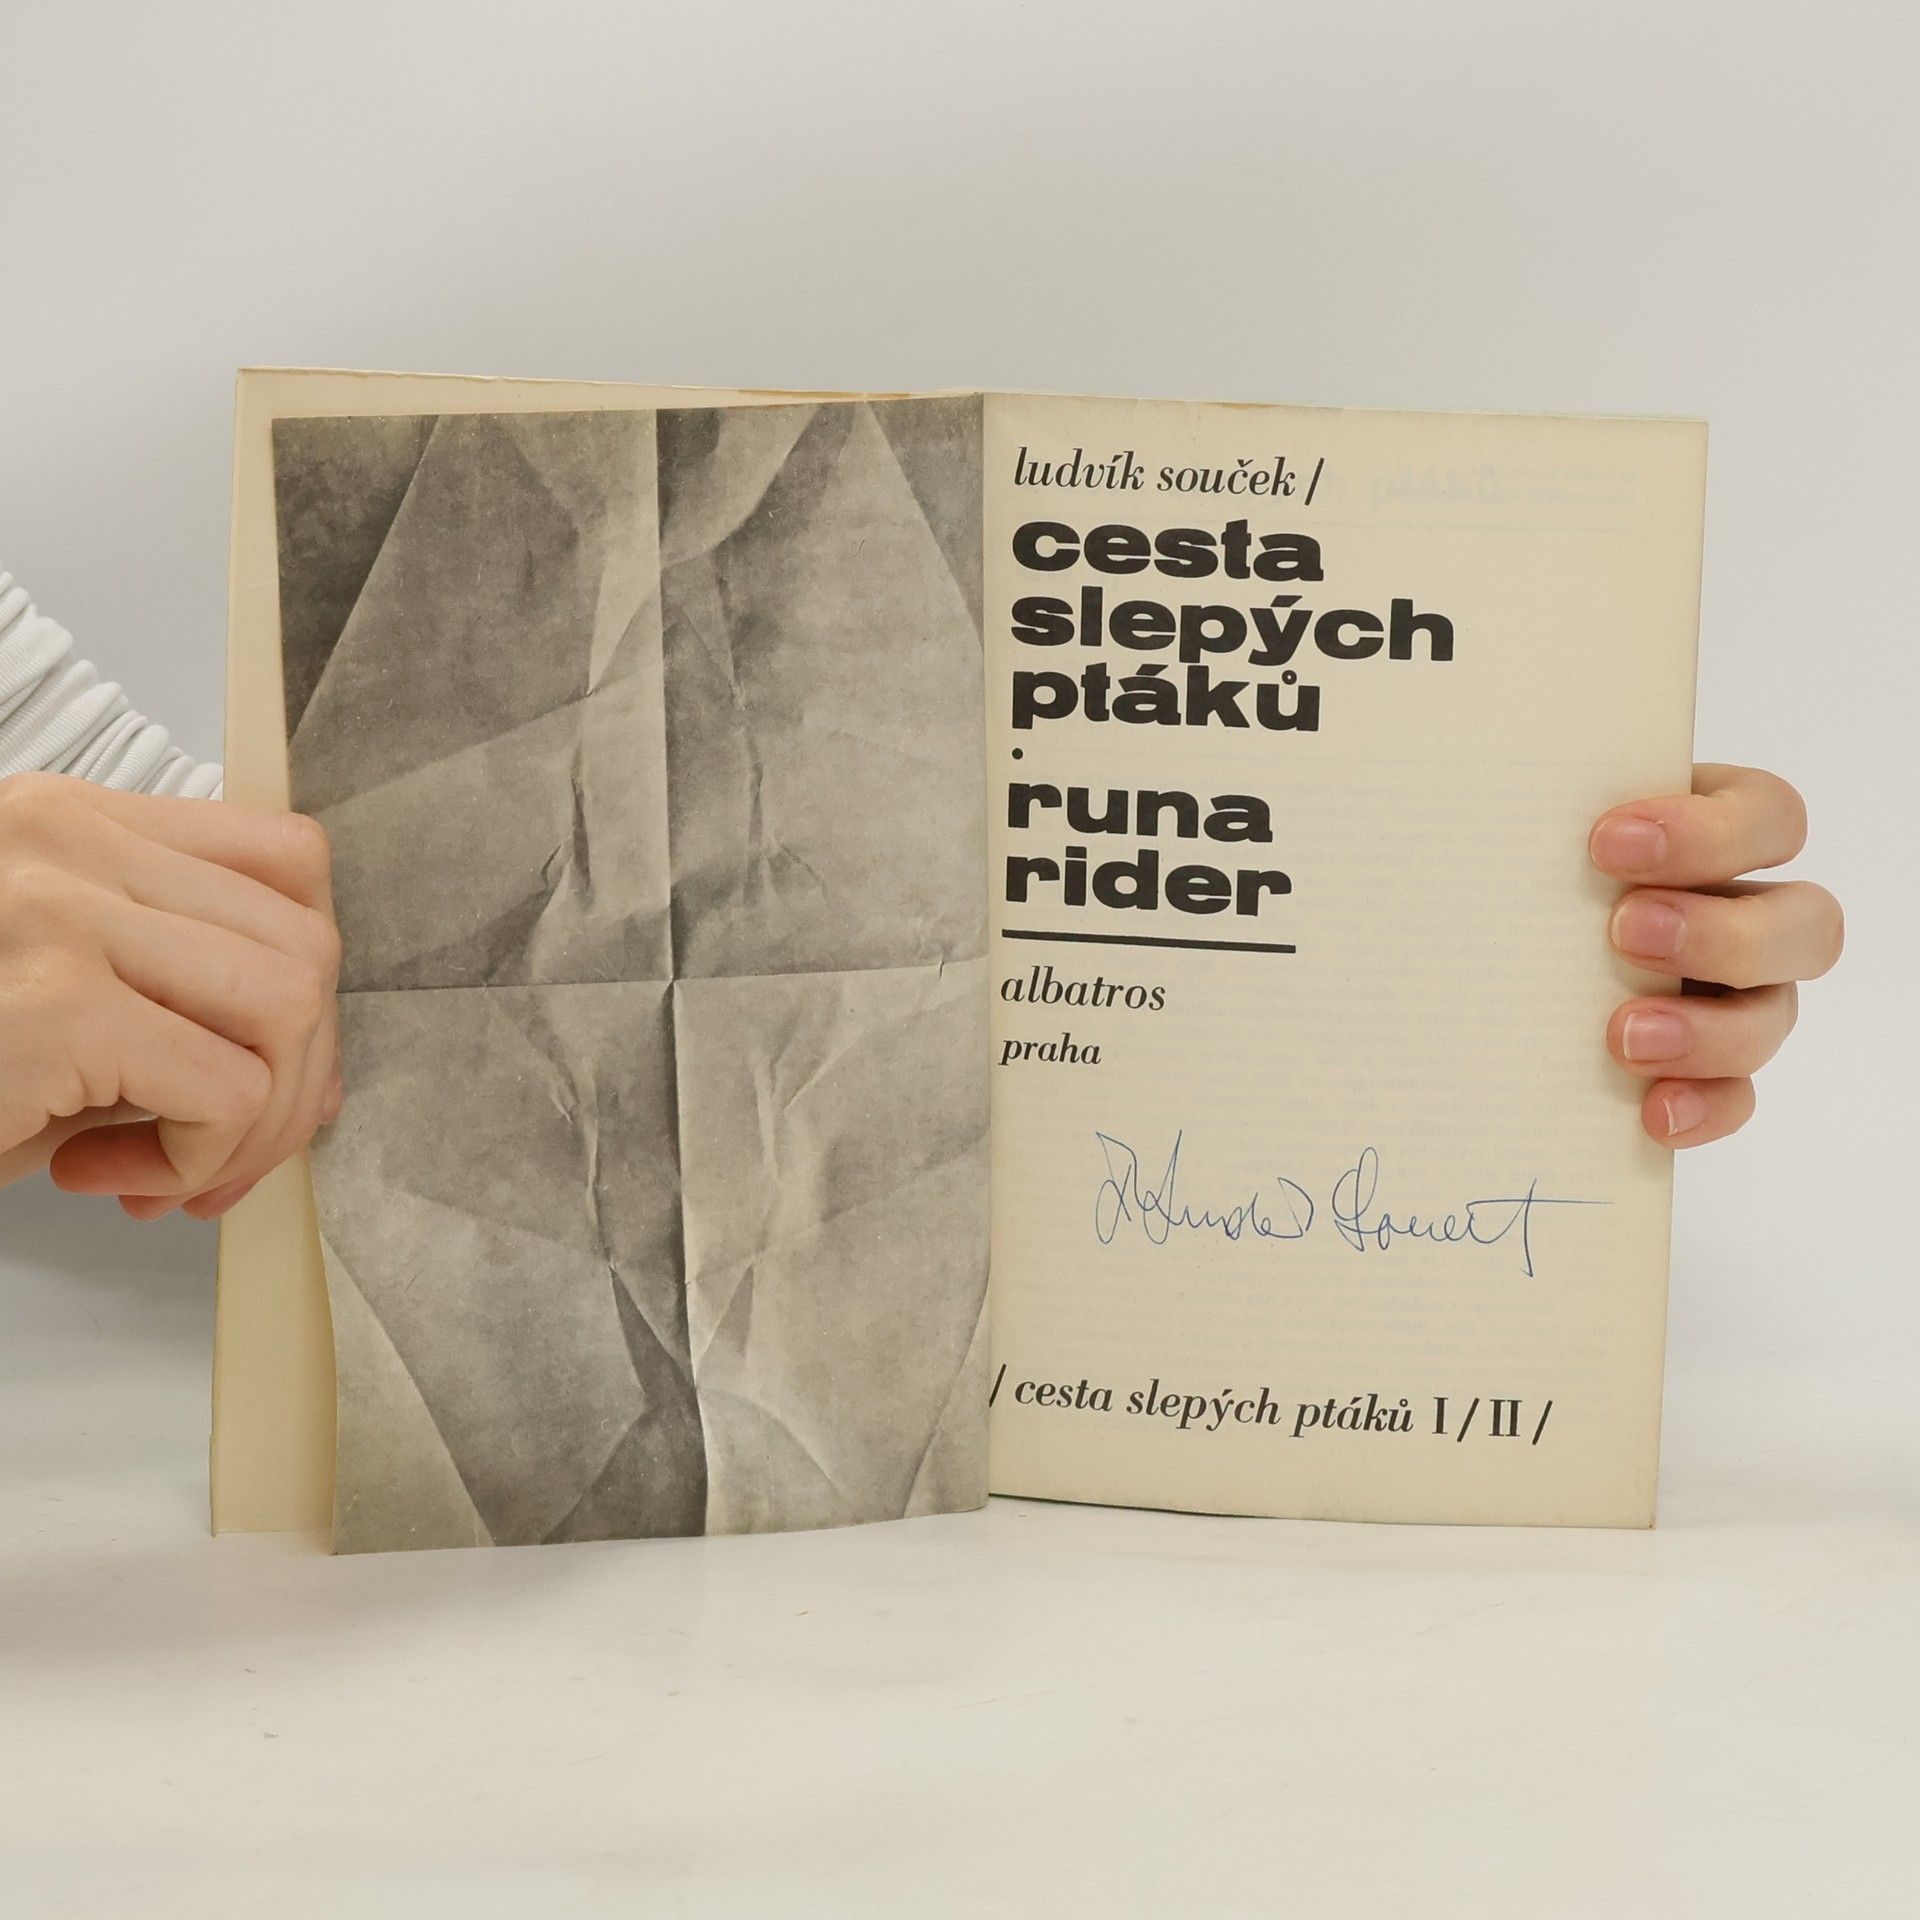 ludvík souček /
cesta
slepých
ptáků
•
runa
rider
albatros
praha
/ cesta slepých ptáků I / II /